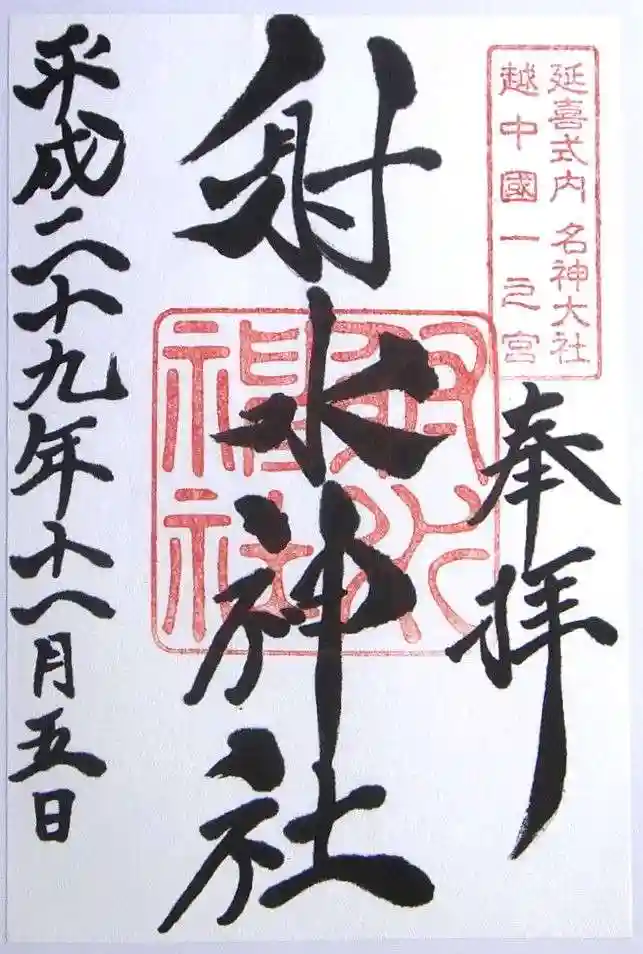 延喜式内 名神大社
越中國一之宮
奉拝
射水神社
射水神社
平成二十九年十一月五日